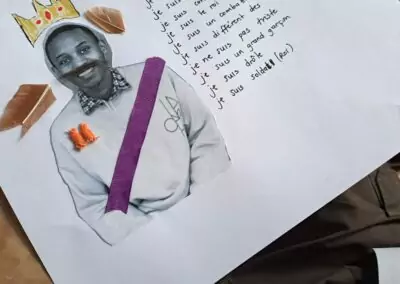 je suis
je suis le roi
je suis un comba
je suis différent des
je ne suis pas triste
je suis un grand garçon
je suis drôle
je suis soldat (ROI)